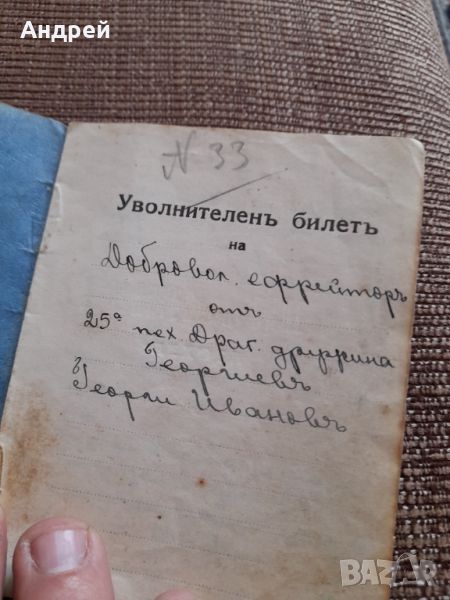 Андрей
N 33
Уволнителенъ билетъ
на
Добровол. ефрейторъ
отъ
25а пех. Драг. дружина
Георгиевъ
Георги Ивановъ
BAZAR